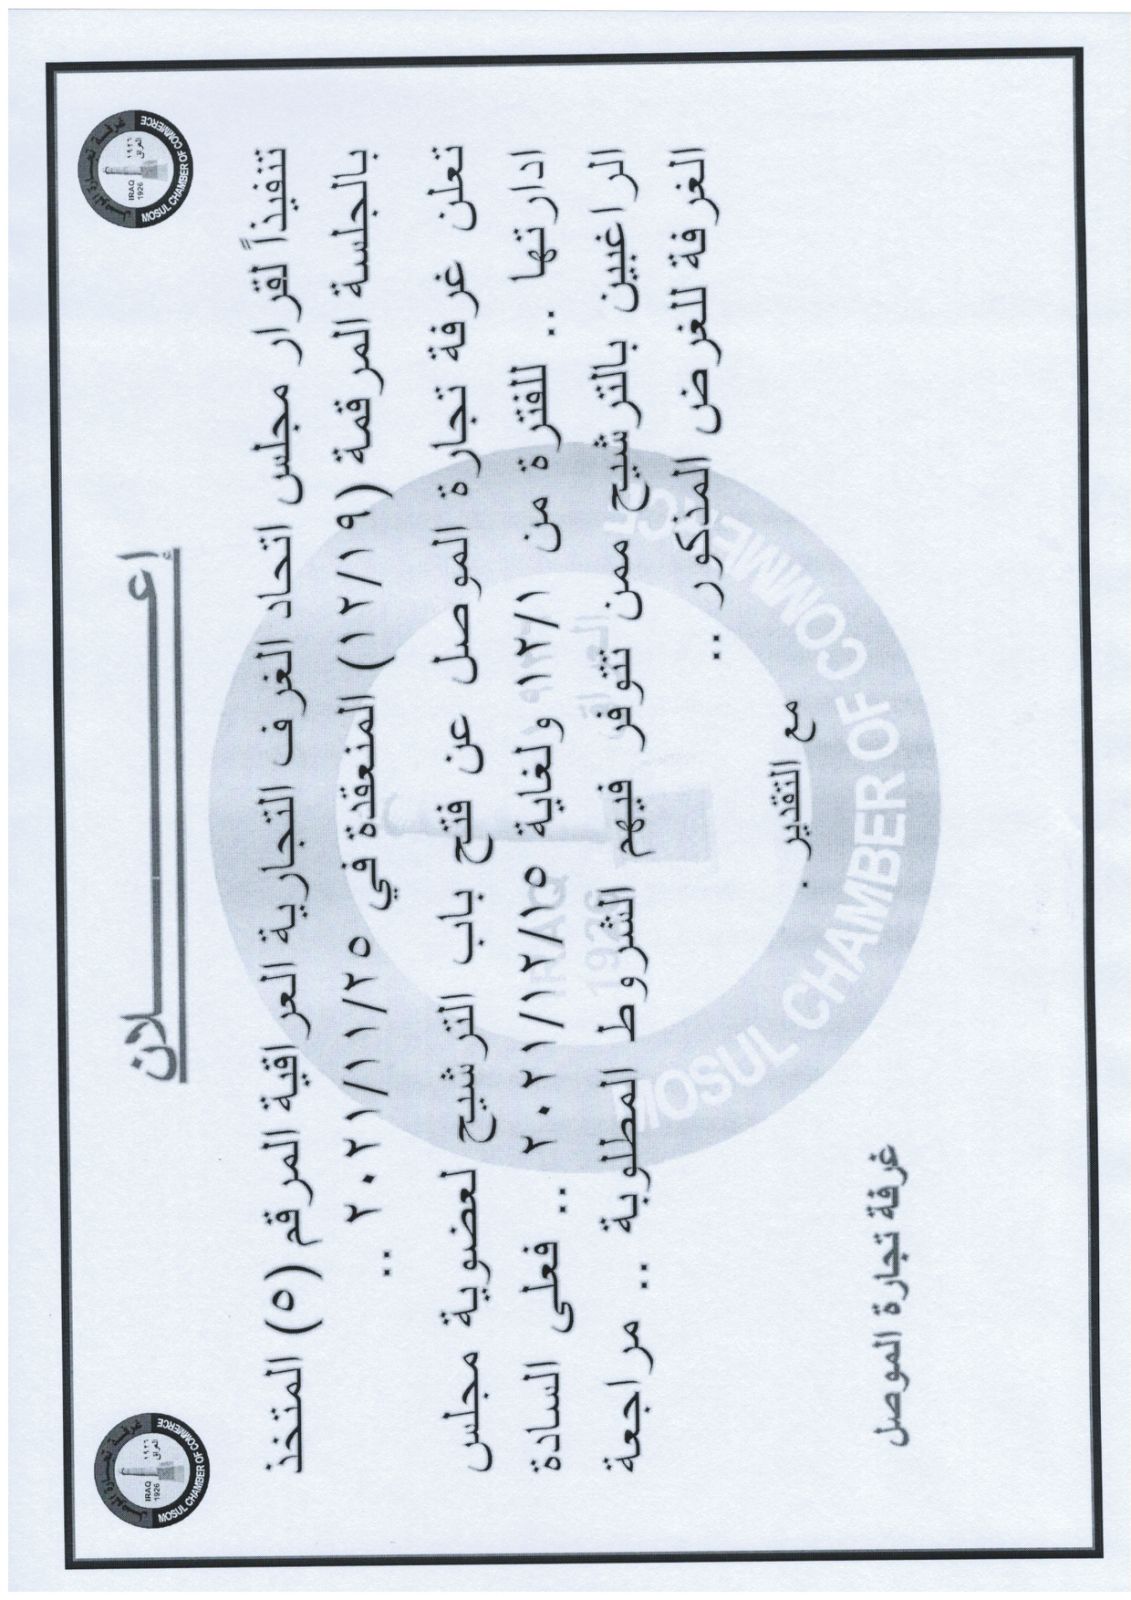 إعـــــــلان
تنفيذاً لقرار مجلس اتحاد الغرف التجارية العراقية المرقم (٥) المتخذ
بالجلسة المرقمة (١٢/١٩) المنعقدة في ٢٠٢١/١١/٢٥ ..
تعلن غرفة تجارة الموصل عن فتح باب الترشيح لعضوية مجلس
ادارتها .. للفترة من ١٢/١ ولغاية ٢٠٢١/١٢/١٥ .. فعلى السادة
الراغبين بالترشيح ممن تتوفر فيهم الشروط المطلوبة .. مراجعة
الغرفة للغرض المذكور ..
مع التقدير .
غرفة تجارة الموصل
غرفة تجارة الموصل
العراق
١٩٢٦
IRAQ
1926
MOSUL CHAMBER OF COMMERCE
غرفة تجارة الموصل
العراق
١٩٢٦
IRAQ
1926
MOSUL CHAMBER OF COMMERCE
IRAQ
1926
MOSUL CHAMBER OF COMMERCE